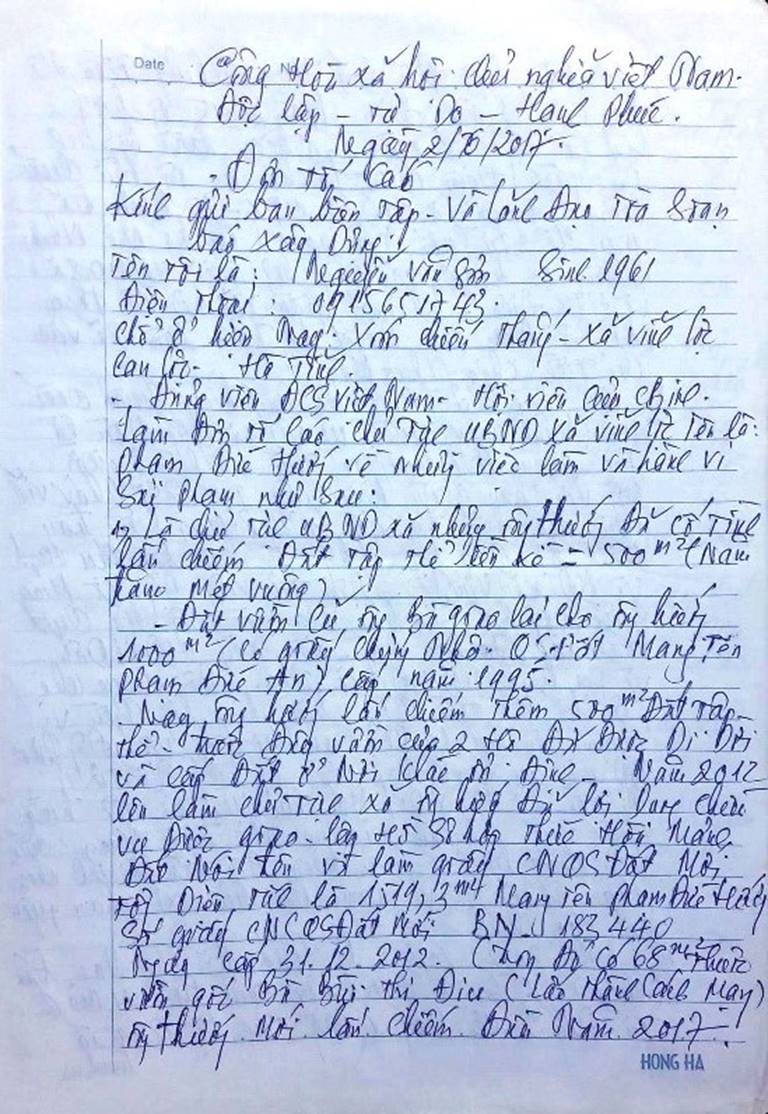 Date Nº
Công Hòa xã hội chủ nghĩa việt Nam.
Độc lập - tự Do - Hạnh Phúc.
Ngày 2/10/2017.
- Đơn Tố Cáo
Kính gửi ban biên tập - Và lãnh Đạo Tòa Soạn
báo Xây Dựng.
Tên tôi là: Nguyễn Văn Sinh 1961
Điện thoại: 0915651743.
Chổ ở hiện nay: Xóm chiến thắng - Xã vĩnh lộc
can lộc - Hà Tĩnh
- Đảng viên ĐCS việt Nam - Hội viên Cựu chinh.
Làm Đơn tố Cáo chủ Tịch UBND Xã vĩnh lộc Tên là:
phạm Đức về những việc làm và hành vi
Sai phạm như Sau:
1, Là chủ tịch UBND xã nhưng ông Đã cố Tình
lấn chiếm Đất tập thể liền kề = 500m2 (Năm
trăm mét vuông)
- Đất vườn Cũ ông Bà giao lại cho ông
1000m2 (có giấy chứng nhận QS Đất Mang Tên
phạm Đức An) cấp năm 1995.
- Nay ông lấn chiếm thêm 500m2 Đất tập
thể - trước Đây vườn của 2 Hộ Đã Được Di Dời
và cấp Đất ở Nơi khác ổn định - Năm 2012
lên làm chủ tịch xã ông Đã lợi dụng chức
vụ Được giao - lập Hồ Sơ hợp thức Hóa Mảnh
Đất Nói trên và làm giấy CNQS Đất Mới
Diện tích là 1519,3m4 Mang tên phạm Đức
Số giấy CNQS Đất Mới BN 183440
Ngày cấp 31.12.2012. có 68m2 thuộc
vườn gốc Bà Bùi thị (lão thành Cách Mạng)
ông Mới lấn chiếm Đầu Năm 2017.
HONG HA